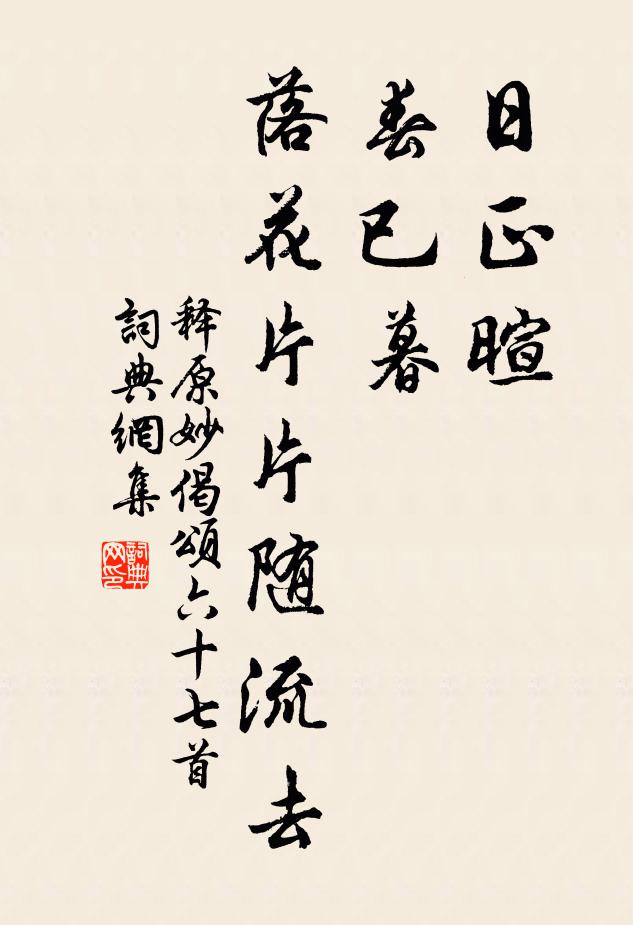 日正暄
春已暮
落花片片随流去
释原妙偈頌六十七首
詞典網集
詞典网印